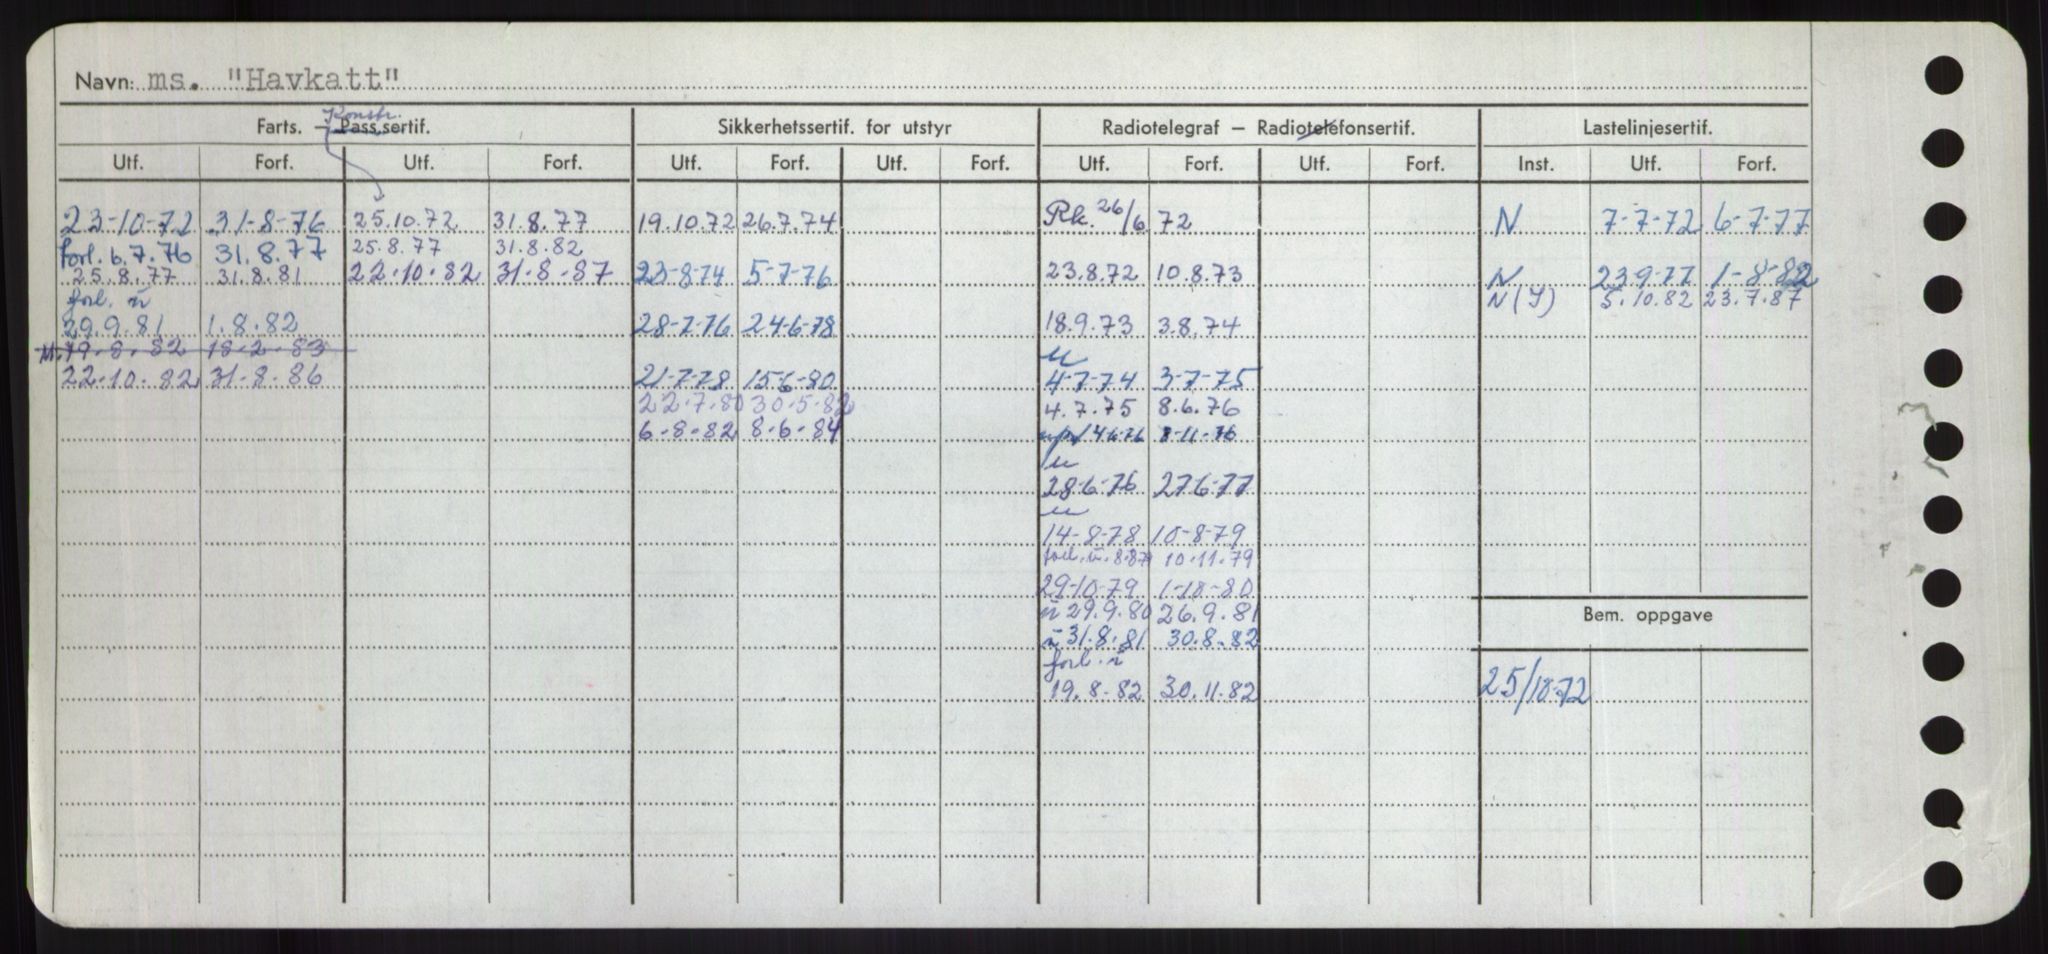 Navn: ms. "Havkatt"
Konstr.
Farts. — Pass.sertif. Sikkerhetssertif. for utstyr Radiotelegraf — Radiotelefonsertif. Lastelinjesertif.
Utf. Forf. Utf. Forf. Utf. Forf. Utf. Forf. Utf. Forf. Utf. Forf. Inst. Utf. Forf.
23-10-72 31-8-76 25.10.72 31.8.77 19.10.72 26.7.74 Rk. 26/6 72 N 7-7-72 6-7-77
forl. 6.7.76 31.8.77 25.8.77 31.8.82
25.8.77 31.8.81 22.10.82 31-8-87 23-8-74 5-7-76 23.8.72 10.8.73 N 23-9-77 1-8-82
forl. ū N(I) 5.10.82 23.7.87
29.9.81 1.8.82 28-7-76 24-6-78 18.9.73 3.8.74
M. 19.8.82 18-2-83 u
22.10.82 31-8-86 21-7-78 15-6-80 4-7-74 3-7-75
22.7.80 30.5.82 4.7.75 8.6.76
6-8-82 8-6-84 8-11-76
u
28-6-76 27-6-77
u
14-8-78 10-8-79
forl. ū. 10.11.79
29-10-79 1-10-80
ū 29.9.80 26.9.81
ū 31.8.81 30.8.82
Bem. oppgave
forl. ū
19.8.82 30.11.82 25/10-72